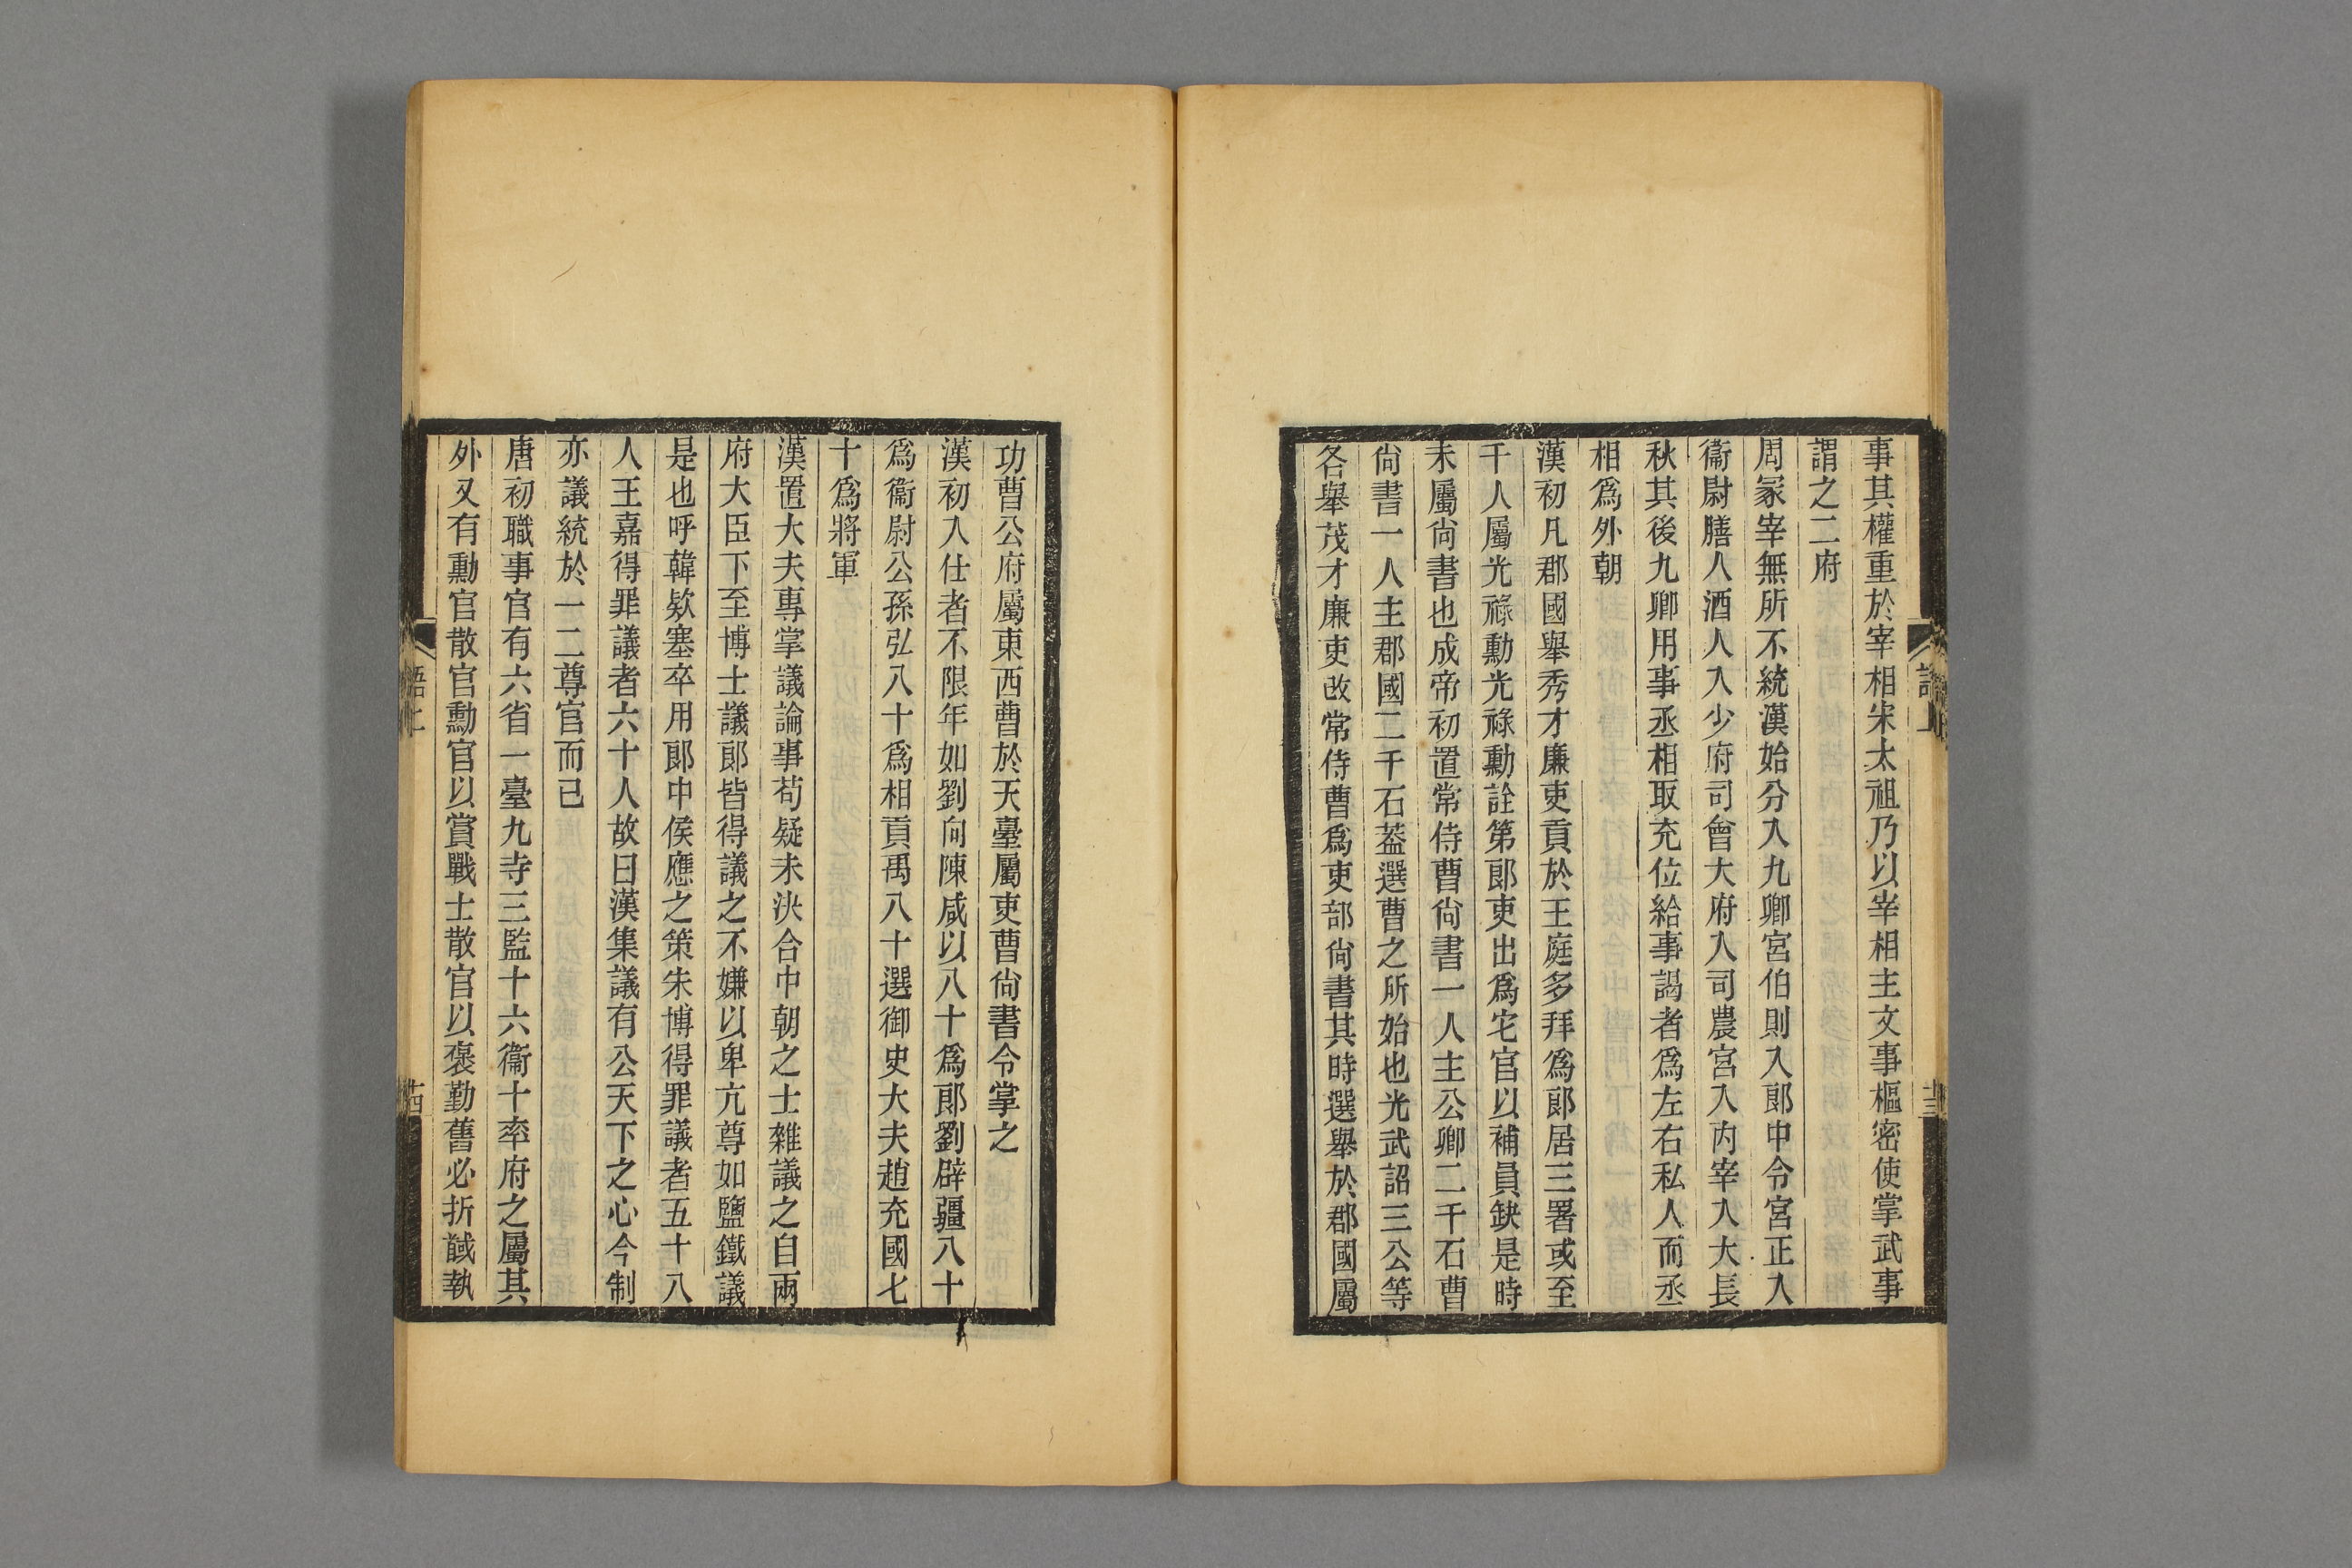 事其權重於宰相宋太祖乃以宰相主文事樞密使掌武事
謂之二府
周冢宰無所不統漢始分入九卿宮伯則入郎中令宮正入
衞尉膳人酒人入少府司會大府入司農宮人內宰入大長
秋其後九卿用事丞相取充位給事謁者爲左右私人而丞
相爲外朝
漢初凡郡國舉秀才廉吏貢於王庭多拜爲郎居三署或至
千人屬光祿勳光祿勳詮第郎吏出爲宅官以補員缺是時
未屬尙書也成帝初置常侍曹尙書一人主公卿二千石曹
尙書一人主郡國二千石葢選曹之所始也光武詔三公等
各舉茂才廉吏改常侍曹爲吏部尙書其時選舉於郡國屬
功曹公府屬東西曹於天臺屬吏曹尙書令掌之
漢初入仕者不限年如劉向陳咸以八十爲郎劉辟疆八十
爲衞尉公孫弘八十爲相貢禹八十選御史大夫趙充國七
十爲將軍
漢置大夫專掌議論事苟疑未決合中朝之士雜議之自兩
府大臣下至博士議郎皆得議之不嫌以卑亢尊如鹽鐵議
是也呼韓欵塞卒用郎中侯應之策朱博得罪議者五十八
人王嘉得罪議者六十人故曰漢集議有公天下之心今制
亦議統於一二尊官而已
唐初職事官有六省一臺九寺三監十六衞十率府之屬其
外又有勳官散官勳官以賞戰士散官以褒勤舊必折馘執
語上
十三
語上
十四